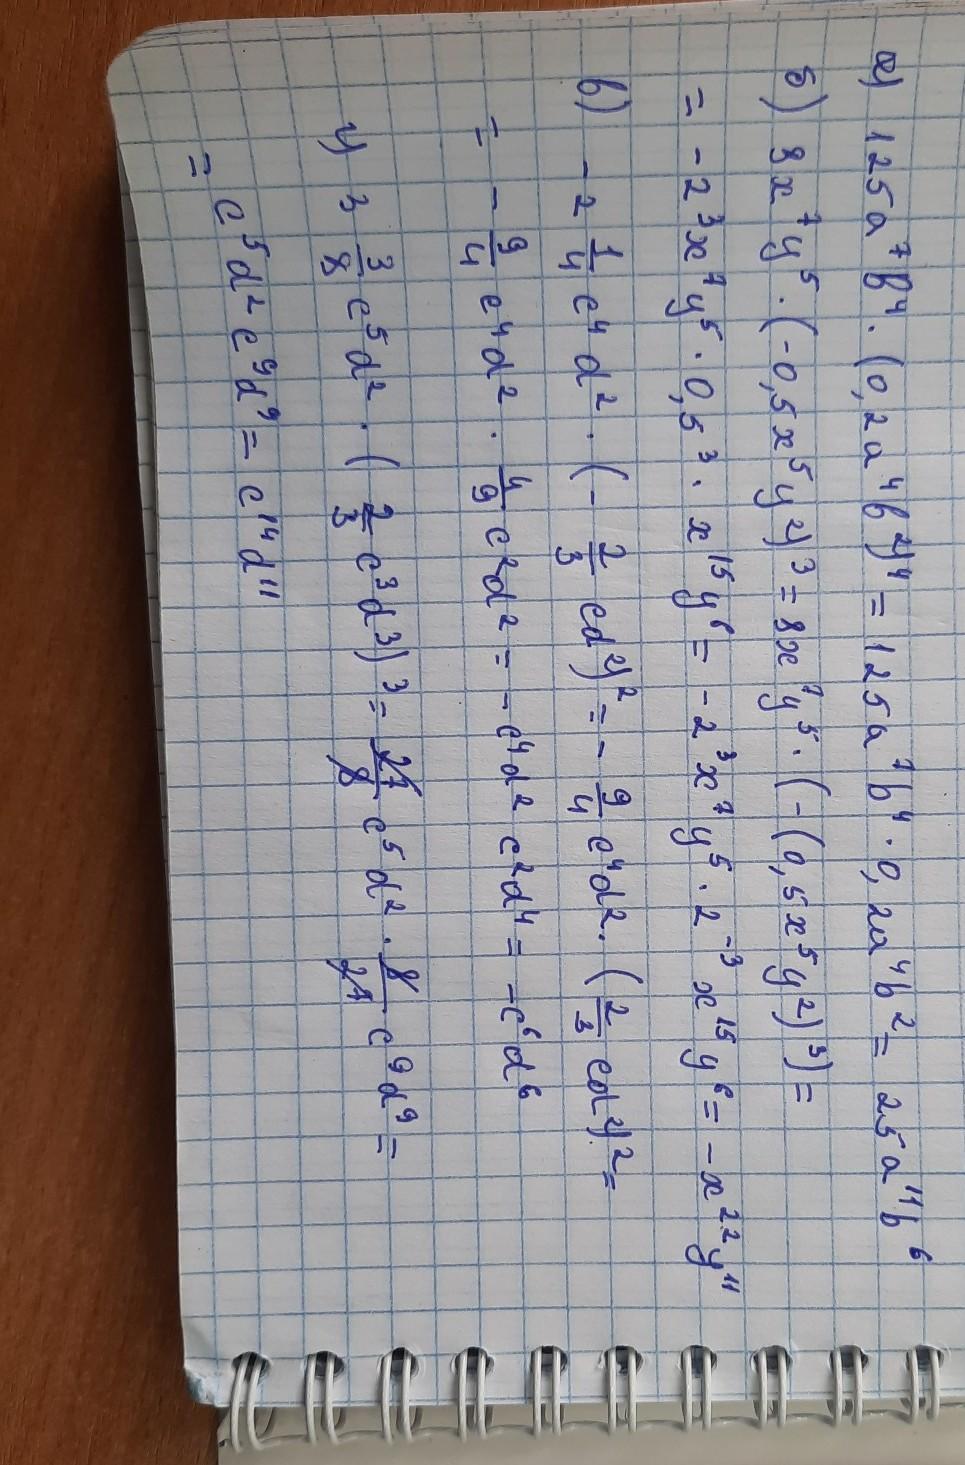 а) 125a⁷b⁴ · (0,2a⁴b²)⁴ = 125a⁷b⁴ · 0,2a⁴b² = 25a¹¹b⁶
б) 8x⁷y⁵ · (-0,5x⁵y²)³ = 8x⁷y⁵ · (-(0,5x⁵y²)³) =
= -2³x⁷y⁵ · 0,5³ · x¹⁵y⁶ = -2³x⁷y⁵ · 2⁻³ x¹⁵y⁶ = -x²²y¹¹
в) -2 1/4 c⁴d² · (-2/3 cd²)² = -9/4 c⁴d² · (2/3 cd²)² =
= -9/4 c⁴d² · 4/9 c²d² = -c⁴d² c²d⁴ = -c⁶d⁶
г) 3 3/8 c⁵d² · (2/3 c³d³)³ = 27/8 c⁵d² · 8/27 c⁹d⁹ =
= c⁵d² c⁹d⁹ = c¹⁴d¹¹